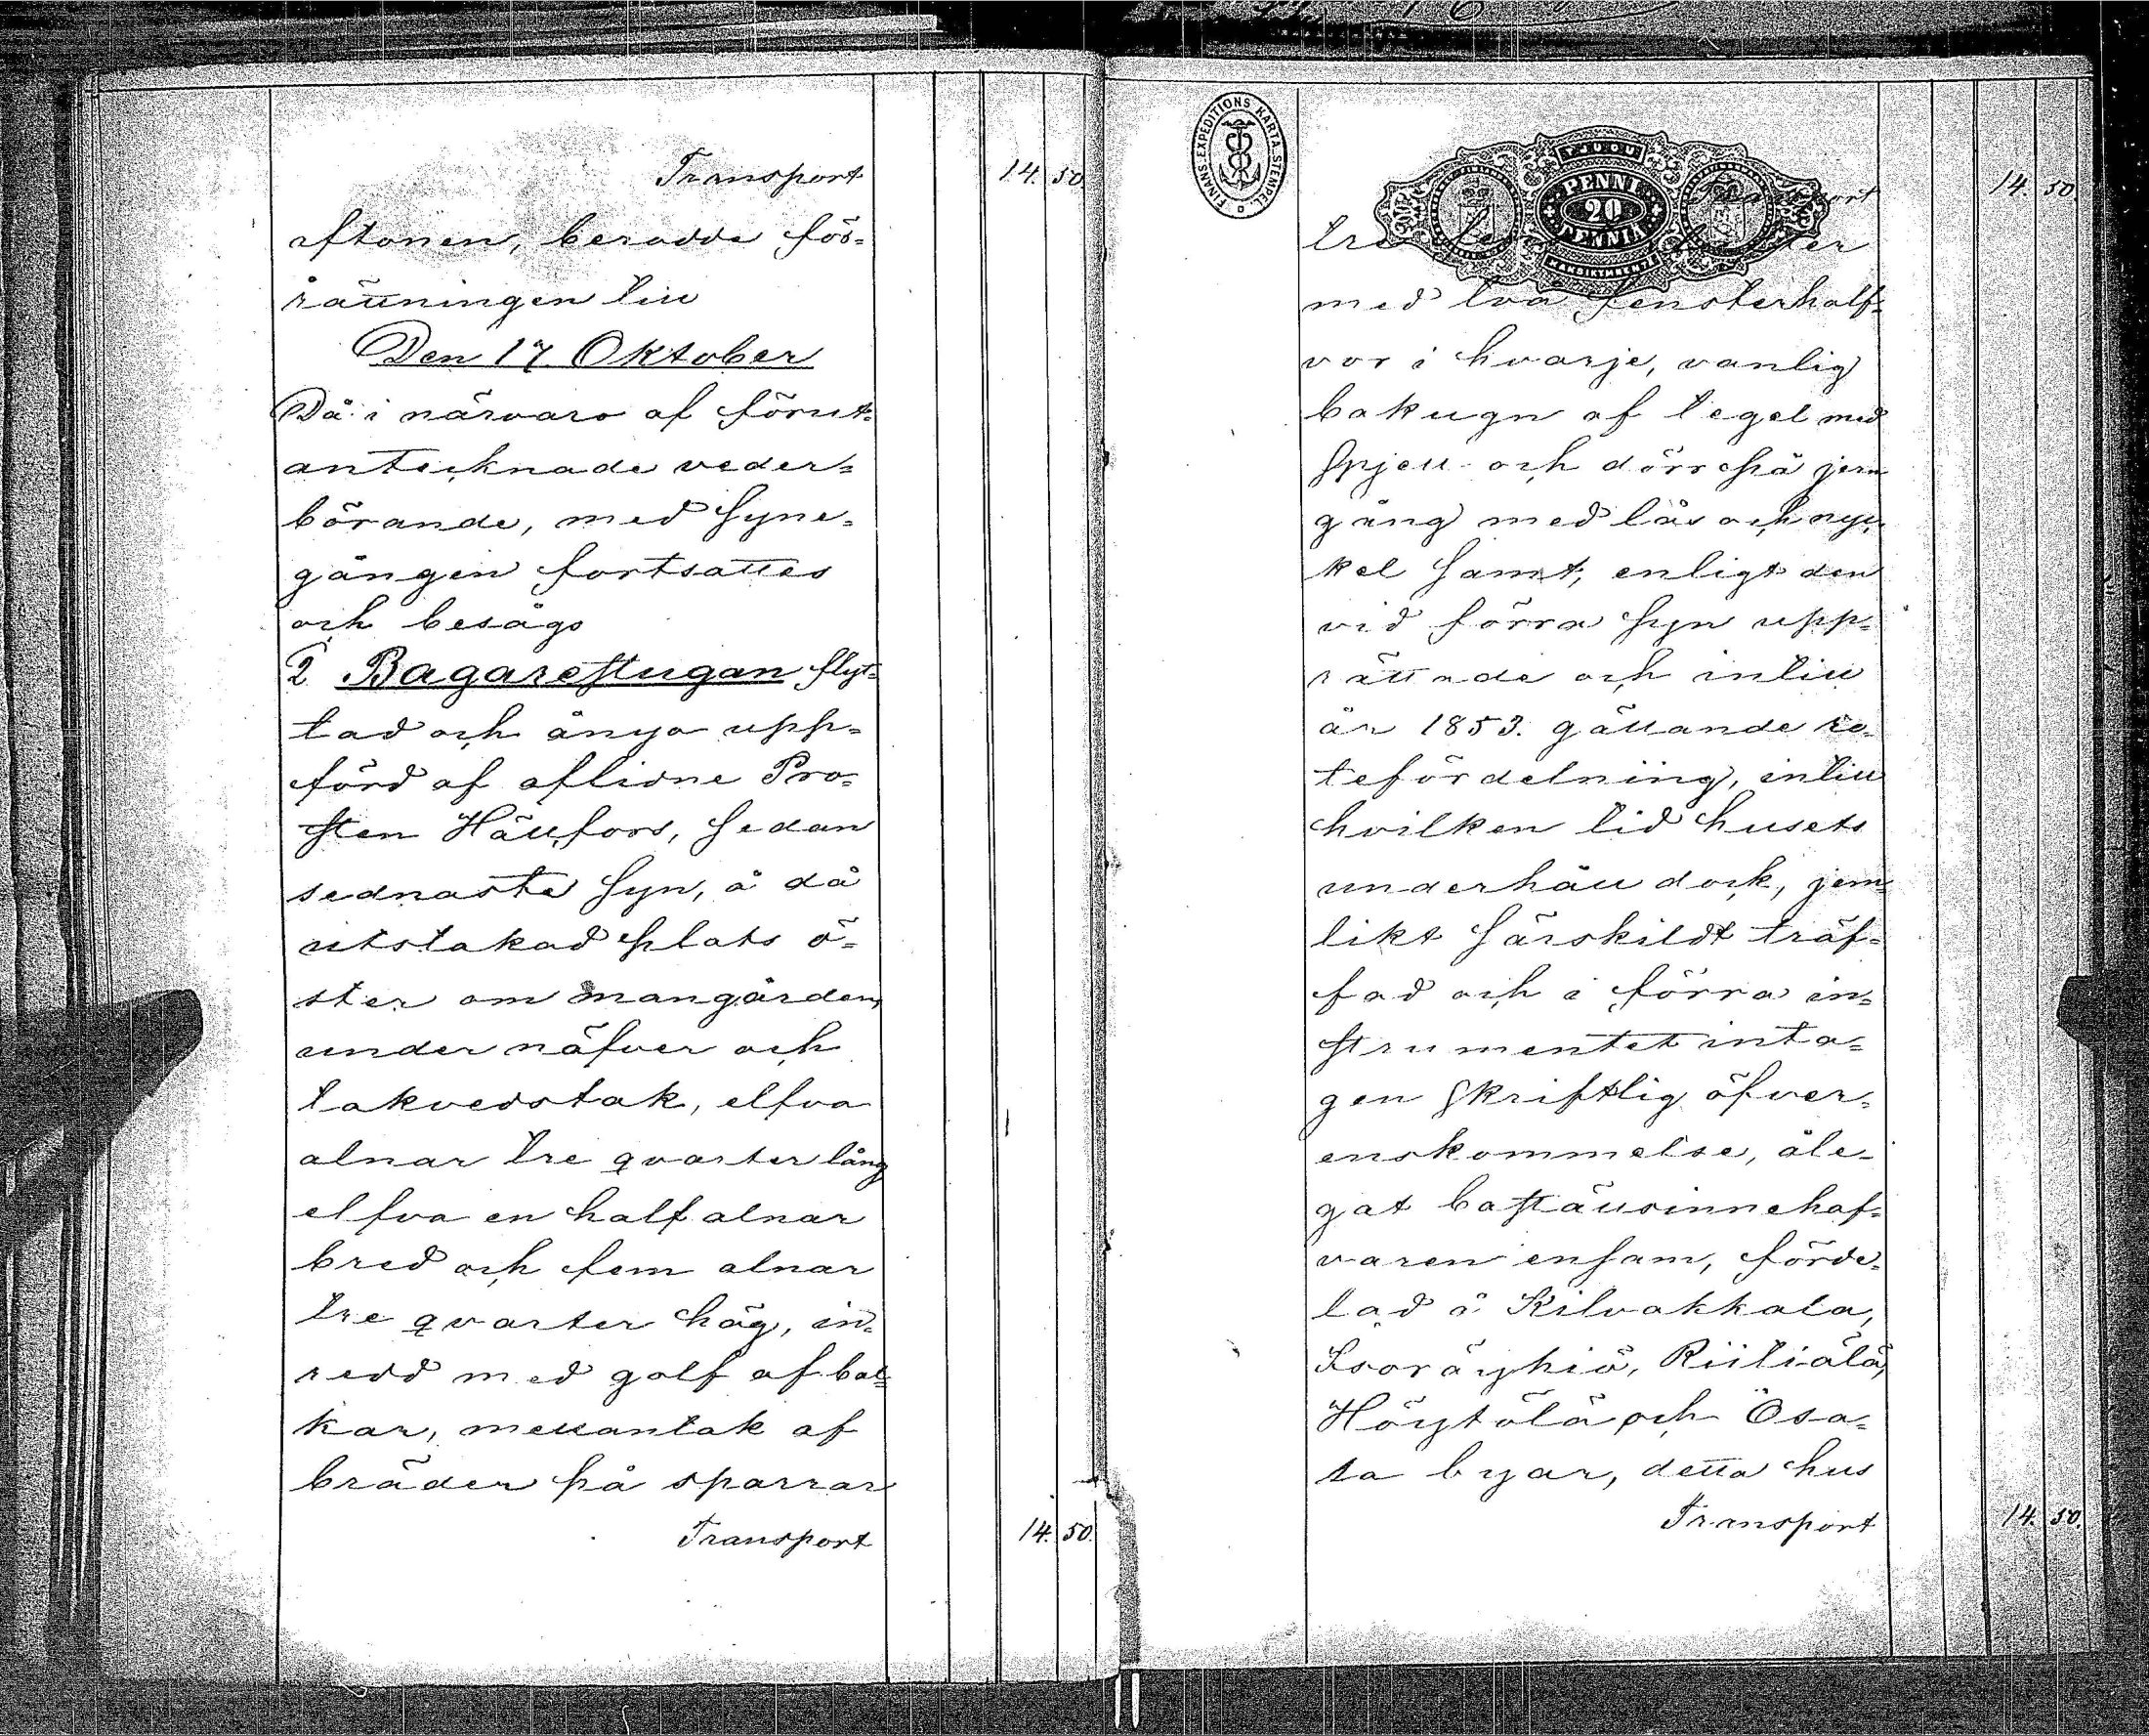 Transport 14. 50.
aftonen, berodde för-
rättningen till
Den 17 Oktober
Då i närvaro af förut-
antecknade veder-
börande, med syne-
gången fortsattes
och besågs
2 Bagarestugan flyt-
tad och ånyo upp-
förd af aflidne Pro-
sten Hällfors, sedan
sednaste syn, å då
utstakad plats ö-
ster om mangården,
under näfver och
takvedstak, elfva
alnar tre qvarter lång
elfva en half alnar
bred och fem alnar
tre qvarter hög, in-
redd med golf af bal-
kar, mellantak af
bräder på sparrar
Transport 14. 50.
FINANS EXPEDITIONS KARTA STEMPEL
TJUGU
PENNI
20
PENNIÄ
KAKSIKYMMENTÄ
Transport 14. 50.
tre
med två fensterhalf-
vor i hvarje, vanlig
bakugn af tegel med
spjell och dörr på jern
gång med lås och nyc-
kel samt, enligt den
vid förra syn upp-
rättade och intill
år 1853. gällande ro-
tefördelning, intill
hvilken tid husets
underhåll dock, jem-
likt särskildt träf-
fad och i förra in-
strumentet inta-
gen skriftlig öfver-
enskommelse, åle-
gat boställsinnehaf-
varen ensam, förde-
lad å Kilvakkala,
Isoröyhiö, Riitiälä,
Höytölä och Osa-
ra byar, detta hus
Transport 14. 50.